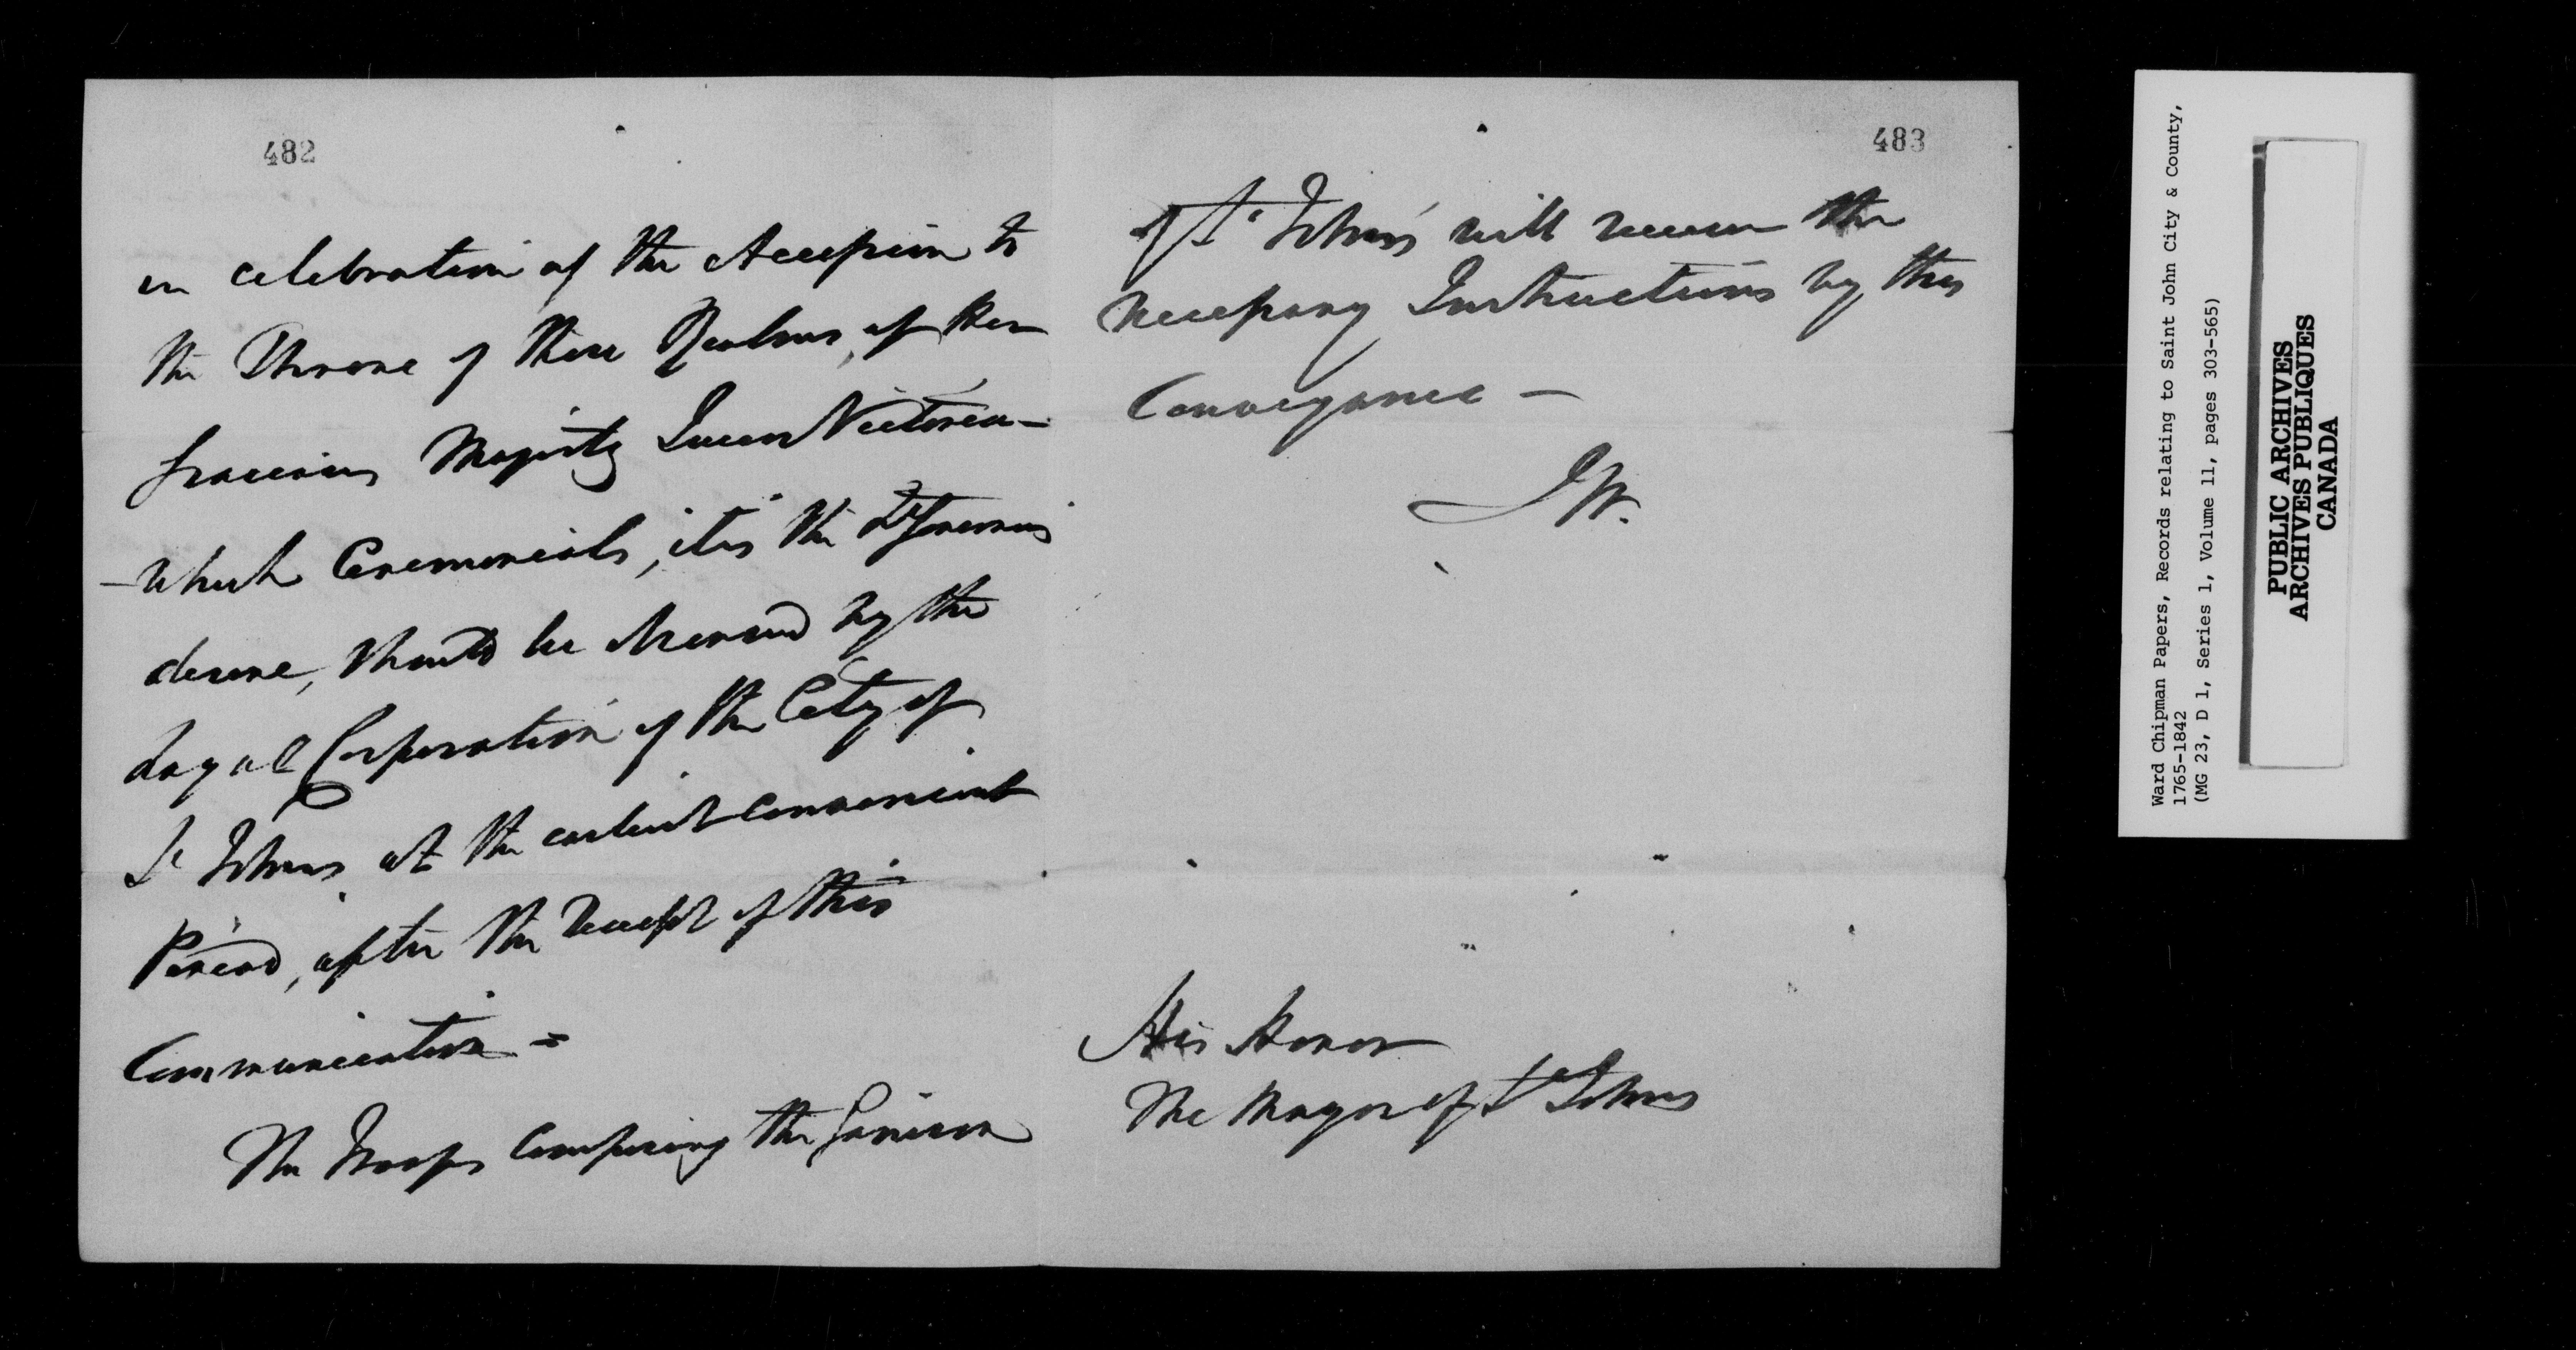 482
in celebration of the Accession to
the Throne of these Realms, of Her
Gracious Majesty Queen Victoria—
—which Ceremonials, it is the Lt Governors
desire, should be observed by the
Loyal Corporation of the City of
St Johns at the earliest convenient
Period, after the receipt of this
Communication =
The Troops composing the Garrison
483
of St Johns will receive the
necessary Instructions by this
Conveyance —
His Honor
The Mayor of St Johns
Ward Chipman Papers, Records relating to Saint John City & County,
1765-1842
(MG 23, D 1, Series 1, Volume 11, pages 303-565)
PUBLIC ARCHIVES
ARCHIVES PUBLIQUES
CANADA